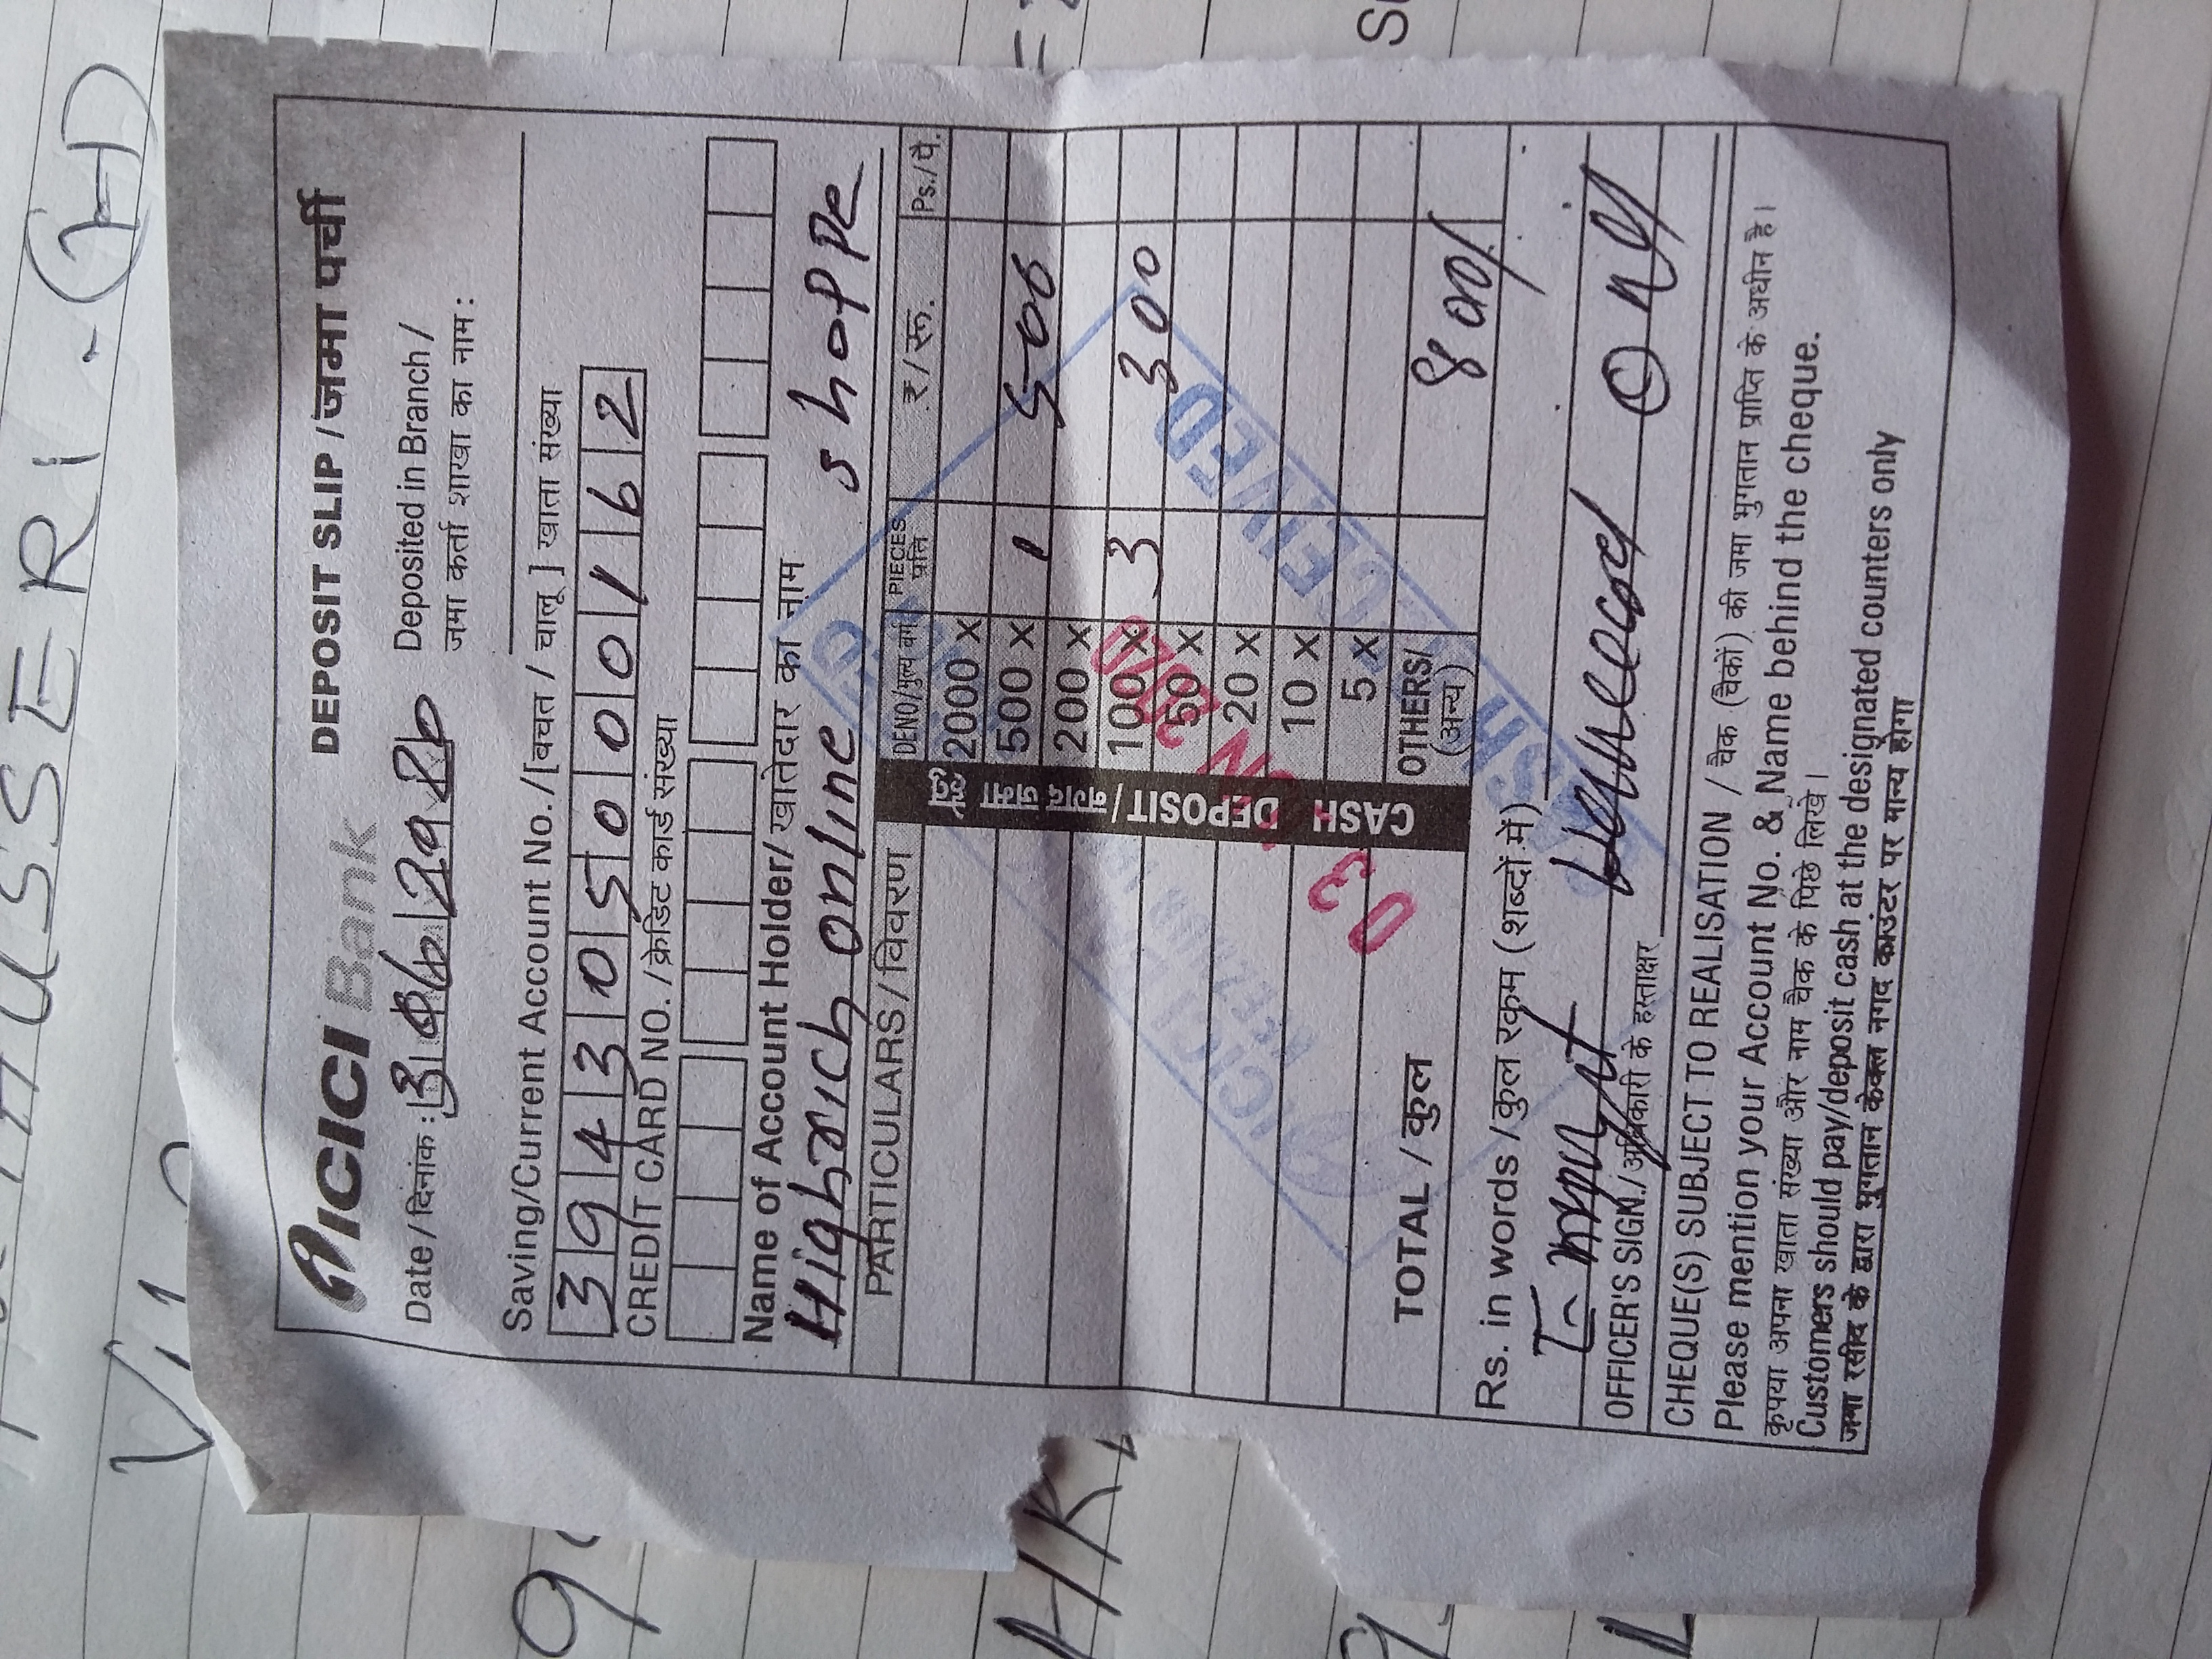 THUSSERI - (H)
ICICI Bank
DEPOSIT SLIP / जमा पर्ची
Date / दिनांक : 3 06 2020
Deposited in Branch /
जमा कर्ता शाखा का नाम :
Saving/Current Account No. / [बचत / चालू ] खाता संख्या
394305000162
CREDIT CARD NO. / क्रेडिट कार्ड संख्या
Name of Account Holder/ खातेदार का नाम
Highrich online shoppe
PARTICULARS / विवरण
DENO/मुल्य वर्ग PIECES प्रति ₹/रू. Ps./पै.
CASH DEPOSIT / नगद जमा हेतु
2000 x
500 x 1 500
200 x
100 x 3 300
50 x
20 x
10 x
5 x
TOTAL / कुल
OTHERS/ (अन्य) 800/
ICICI
03 JUN 2020
CASH RECEIVED
Rs. in words / कुल रकम (शब्दों में)
Only
OFFICER'S SIGN./ अधिकारी के हस्ताक्षर
CHEQUE(S) SUBJECT TO REALISATION / चैक (चैकों) की जमा भुगतान प्राप्ति के अधीन है।
Please mention your Account No. & Name behind the cheque.
कृपया अपना खाता संख्या और नाम चैक के पिछे लिखे।
Customers should pay/deposit cash at the designated counters only
जमा रसीद के द्वारा भुगतान केवल नगद काउंटर पर मान्य होगा